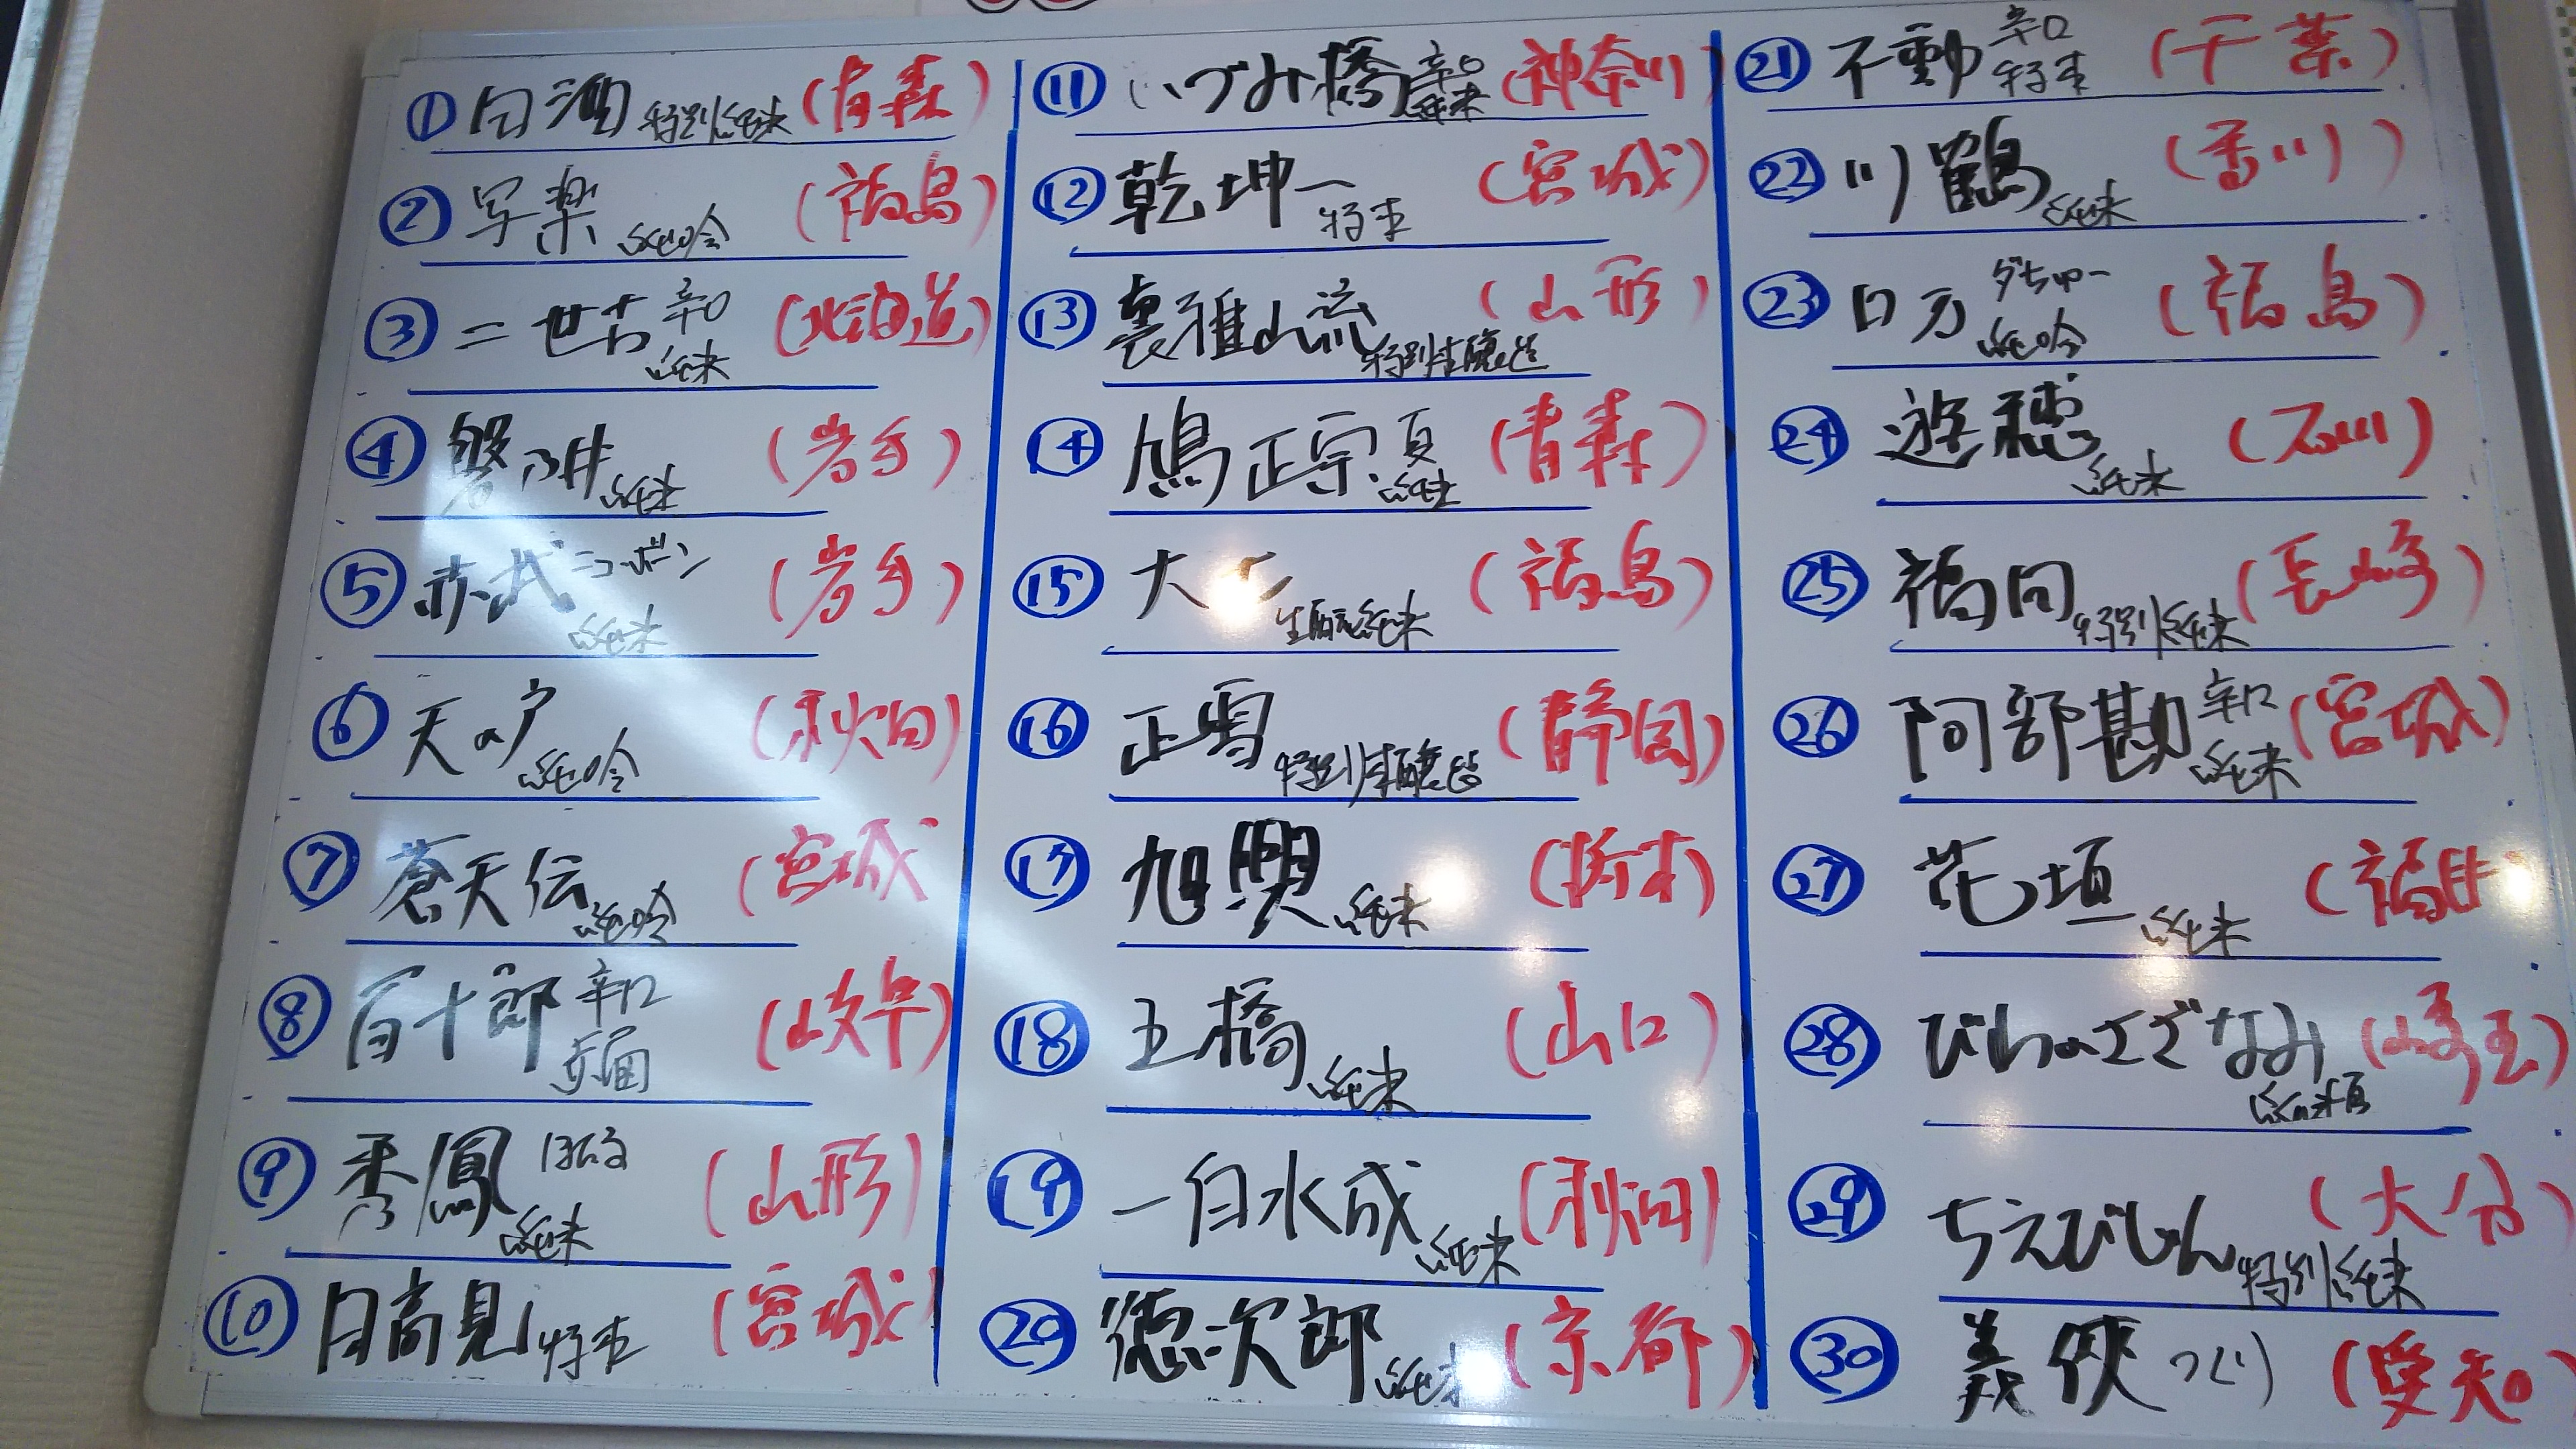 ① 田酒 特別純米 (青森)
② 写楽 純吟 (福島)
③ 二世古 辛口 純米 (北海道)
④ 磐乃井 純米 (岩手)
⑤ 赤武 純米 (岩手)
⑥ 天の戸 純吟 (秋田)
⑦ 蒼天伝 純吟 (宮城
⑧ 百十郎 辛口 (岐阜)
⑨ 秀鳳 純米 (山形)
⑩ 日高見 特本 (宮城)
⑪ いづみ橋 辛口 純米 (神奈川)
⑫ 乾坤一 特本 (宮城)
⑬ 裏雅山流 特別本醸造 (山形)
⑭ 鳩正宗 夏 純米 (青森)
⑮ 大 生酛純米 (福島)
⑯ 正雪 特別本醸造 (静岡)
⑰ 旭興 純米 (栃木)
⑱ 五橋 純米 (山口)
⑲ 一白水成 純米 (秋田)
⑳ 徳次郎 純米 (京都)
㉑ 不動 辛口 特本 (千葉)
㉒ 川鶴 純米 (香川)
㉓ ロ万 ダぢゅー 純吟 (福島)
㉔ 遊穂 純米 (石川)
㉕ 福田 特別純米 (長崎)
㉖ 阿部勘 辛口 純米 (宮城)
㉗ 花垣 純米 (福井)
㉘ びわのさざなみ (埼玉)
㉙ ちえびじん 特別純米 (大分)
㉚ 義侠 (愛知)